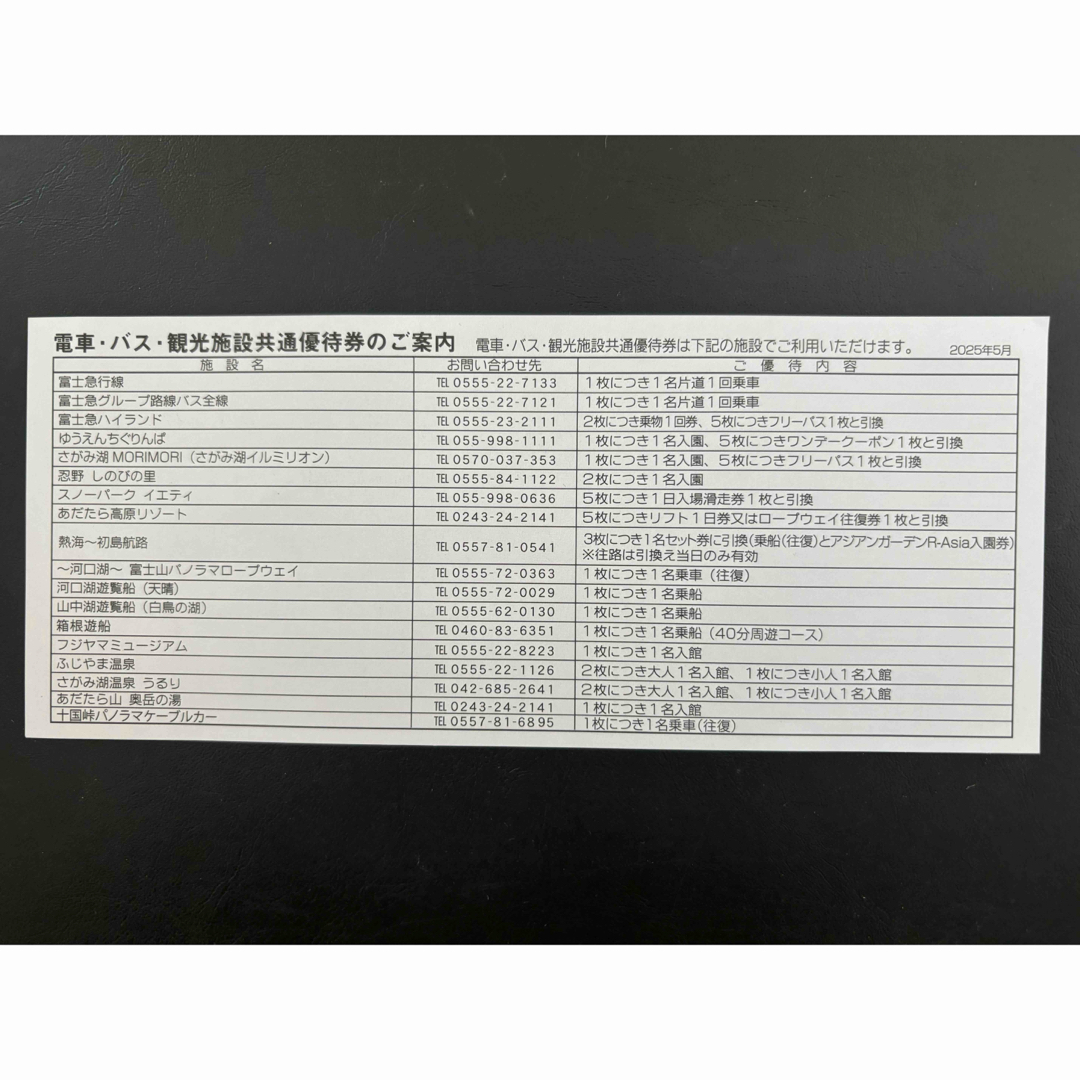 電車・バス・観光施設共通優待券のご案内 電車・バス・観光施設共通優待券は下記の施設でご利用いただけます。 2025年5月
施設名 お問い合わせ先 ご優待内容
富士急行線 TEL 0555-22-7133 1枚につき1名片道1回乗車
富士急グループ路線バス全線 TEL 0555-22-7121 1枚につき1名片道1回乗車
富士急ハイランド TEL 0555-23-2111 2枚につき乗物1回券、5枚につきフリーパス1枚と引換
ゆうえんちぐりんぱ TEL 055-998-1111 1枚につき1名入園、5枚につきワンデークーポン1枚と引換
さがみ湖 MORIMORI（さがみ湖イルミリオン） TEL 0570-037-353 1枚につき1名入園、5枚につきフリーパス1枚と引換
忍野 しのびの里 TEL 0555-84-1122 2枚につき1名入園
スノーパーク イエティ TEL 055-998-0636 5枚につき1日入場滑走券1枚と引換
あだたら高原リゾート TEL 0243-24-2141 5枚につきリフト1日券又はロープウェイ往復券1枚と引換
熱海～初島航路 TEL 0557-81-0541 3枚につき1名セット券に引換(乗船(往復)とアジアンガーデンR-Asia入園券)
※往路は引換え当日のみ有効
～河口湖～ 富士山パノラマロープウェイ TEL 0555-72-0363 1枚につき1名乗車（往復）
河口湖遊覧船（天晴） TEL 0555-72-0029 1枚につき1名乗船
山中湖遊覧船（白鳥の湖） TEL 0555-62-0130 1枚につき1名乗船
箱根遊船 TEL 0460-83-6351 1枚につき1名乗船（40分周遊コース）
フジヤマミュージアム TEL 0555-22-8223 1枚につき1名入館
ふじやま温泉 TEL 0555-22-1126 2枚につき大人1名入館、1枚につき小人1名入館
さがみ湖温泉 うるり TEL 042-685-2641 2枚につき大人1名入館、1枚につき小人1名入館
あだたら山 奥岳の湯 TEL 0243-24-2141 1枚につき1名入館
十国峠パノラマケーブルカー TEL 0557-81-6895 1枚につき1名乗車(往復)